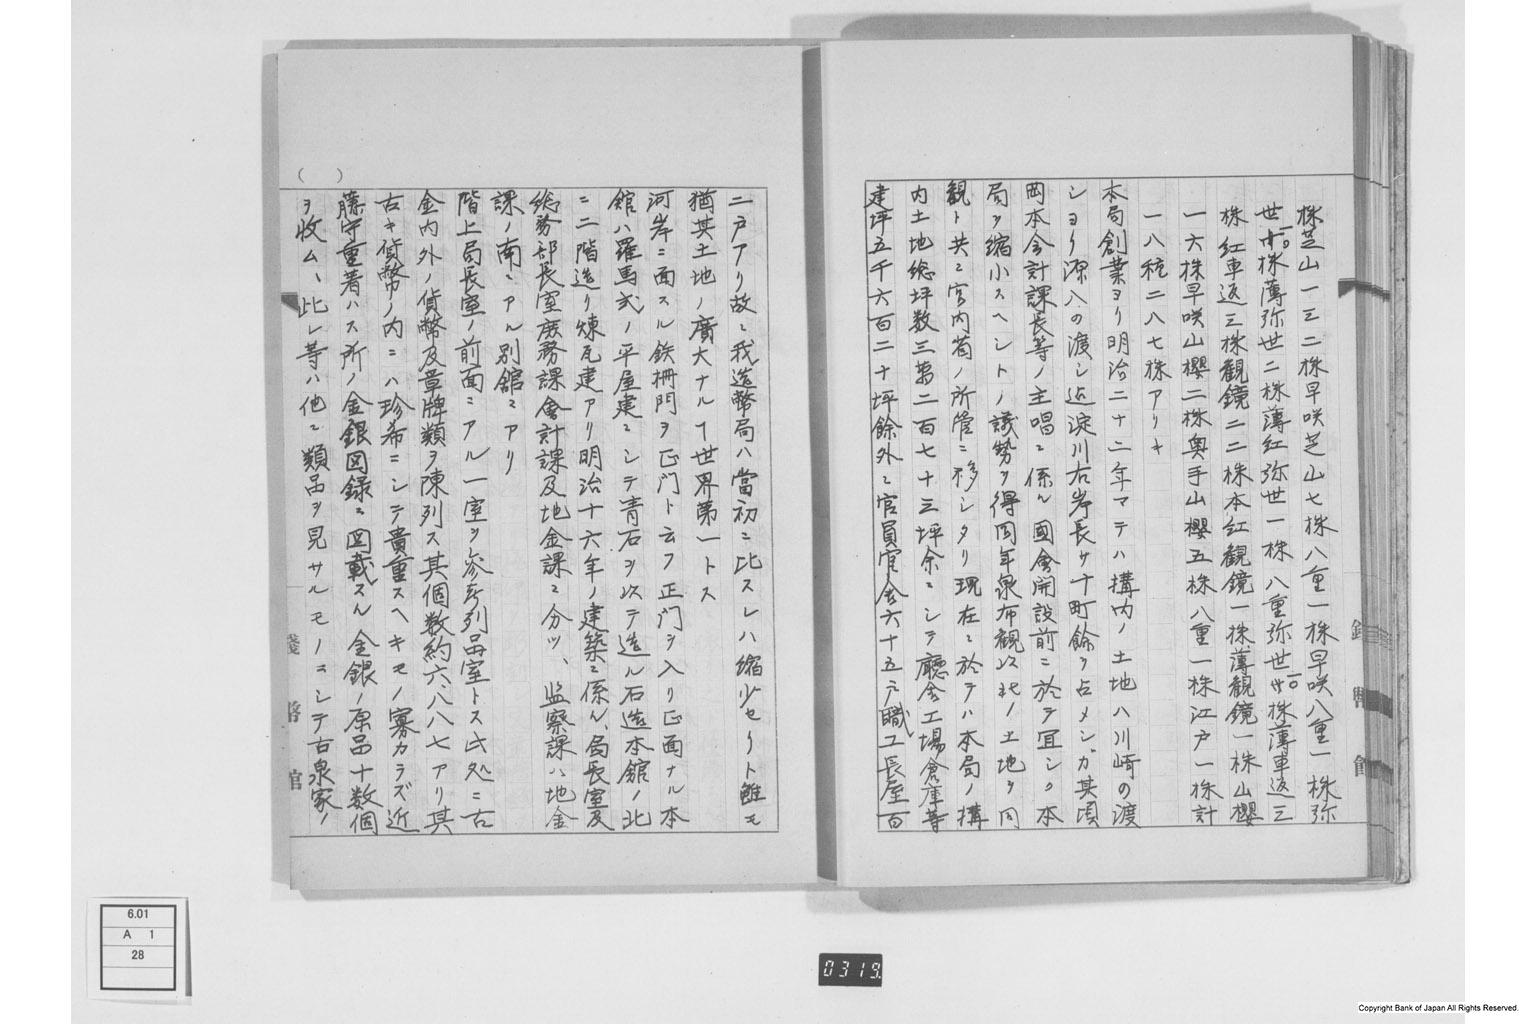 株芝山一三二株早咲芝山七株八重一株早咲八重一株弥
世廿一〇株薄弥世二株薄紅弥世一株八重弥世廿一〇株薄車返三
株紅車返三株観鏡二二株本紅観鏡一株薄観鏡一株山櫻
一六株早咲山櫻二株奥手山櫻五株八重一株江戸一株計
一八種二八七株アリキ
本局創業ヨリ明治二十二年マテハ構内ノ土地ハ川崎の渡
シヨリ源八の渡シ迄淀川右岸長サ十町餘ヲ占メシガ其頃
岡本会計課長等ノ主唱ニ係ル國會開設前ニ於テ宜シク本
局ヲ縮小スヘシトノ議勢ヲ得同年泉布観以北ノ土地ヲ同
観ト共ニ宮内省ノ所管ニ移シタリ現在ニ於テハ本局ノ構
内土地総坪数三萬二百七十三坪余ニシテ廳舎工場倉庫等
建坪五千六百二十坪餘外ニ官員官舎六十五戸職工長屋百
二戸アリ故ニ我造幣局ハ當初ニ比スレハ縮少セリト雖モ
猶其土地ノ廣大ナルヿ世界第一トス
河岸ニ面スル鉄柵門ヲ正門ト云フ正門ヲ入リ正面ナル本
館ハ羅馬式ノ平屋建ニシテ青石ヲ以テ造ル石造本館ノ北
ニ二階造リ煉瓦建アリ明治十六年ノ建築ニ係ル、局長室及
総務部長室庶務課會計課及地金課ニ分ツ、監察課ハ地金
課ノ南ニアル別舘ニアリ
階上局長室ノ前面ニアル一室ヲ参考列品室トス此処ニ古
金内外ノ貨幣及章牌類ヲ陳列ス其個数約六八八七アリ其
古キ貨幣ノ内ニハ珍希ニシテ貴重スヘキモノ寡カラズ近
藤守重著ハス所ノ金銀図録ニ図載スル金銀ノ原品十数個
ヲ收ム、此レ等ハ他ニ類品ヲ見サルモノニシテ古泉家ノ
( )
錢幣館
6.01
A 1
28
0319.
Copyright Bank of Japan All Rights Reserved.